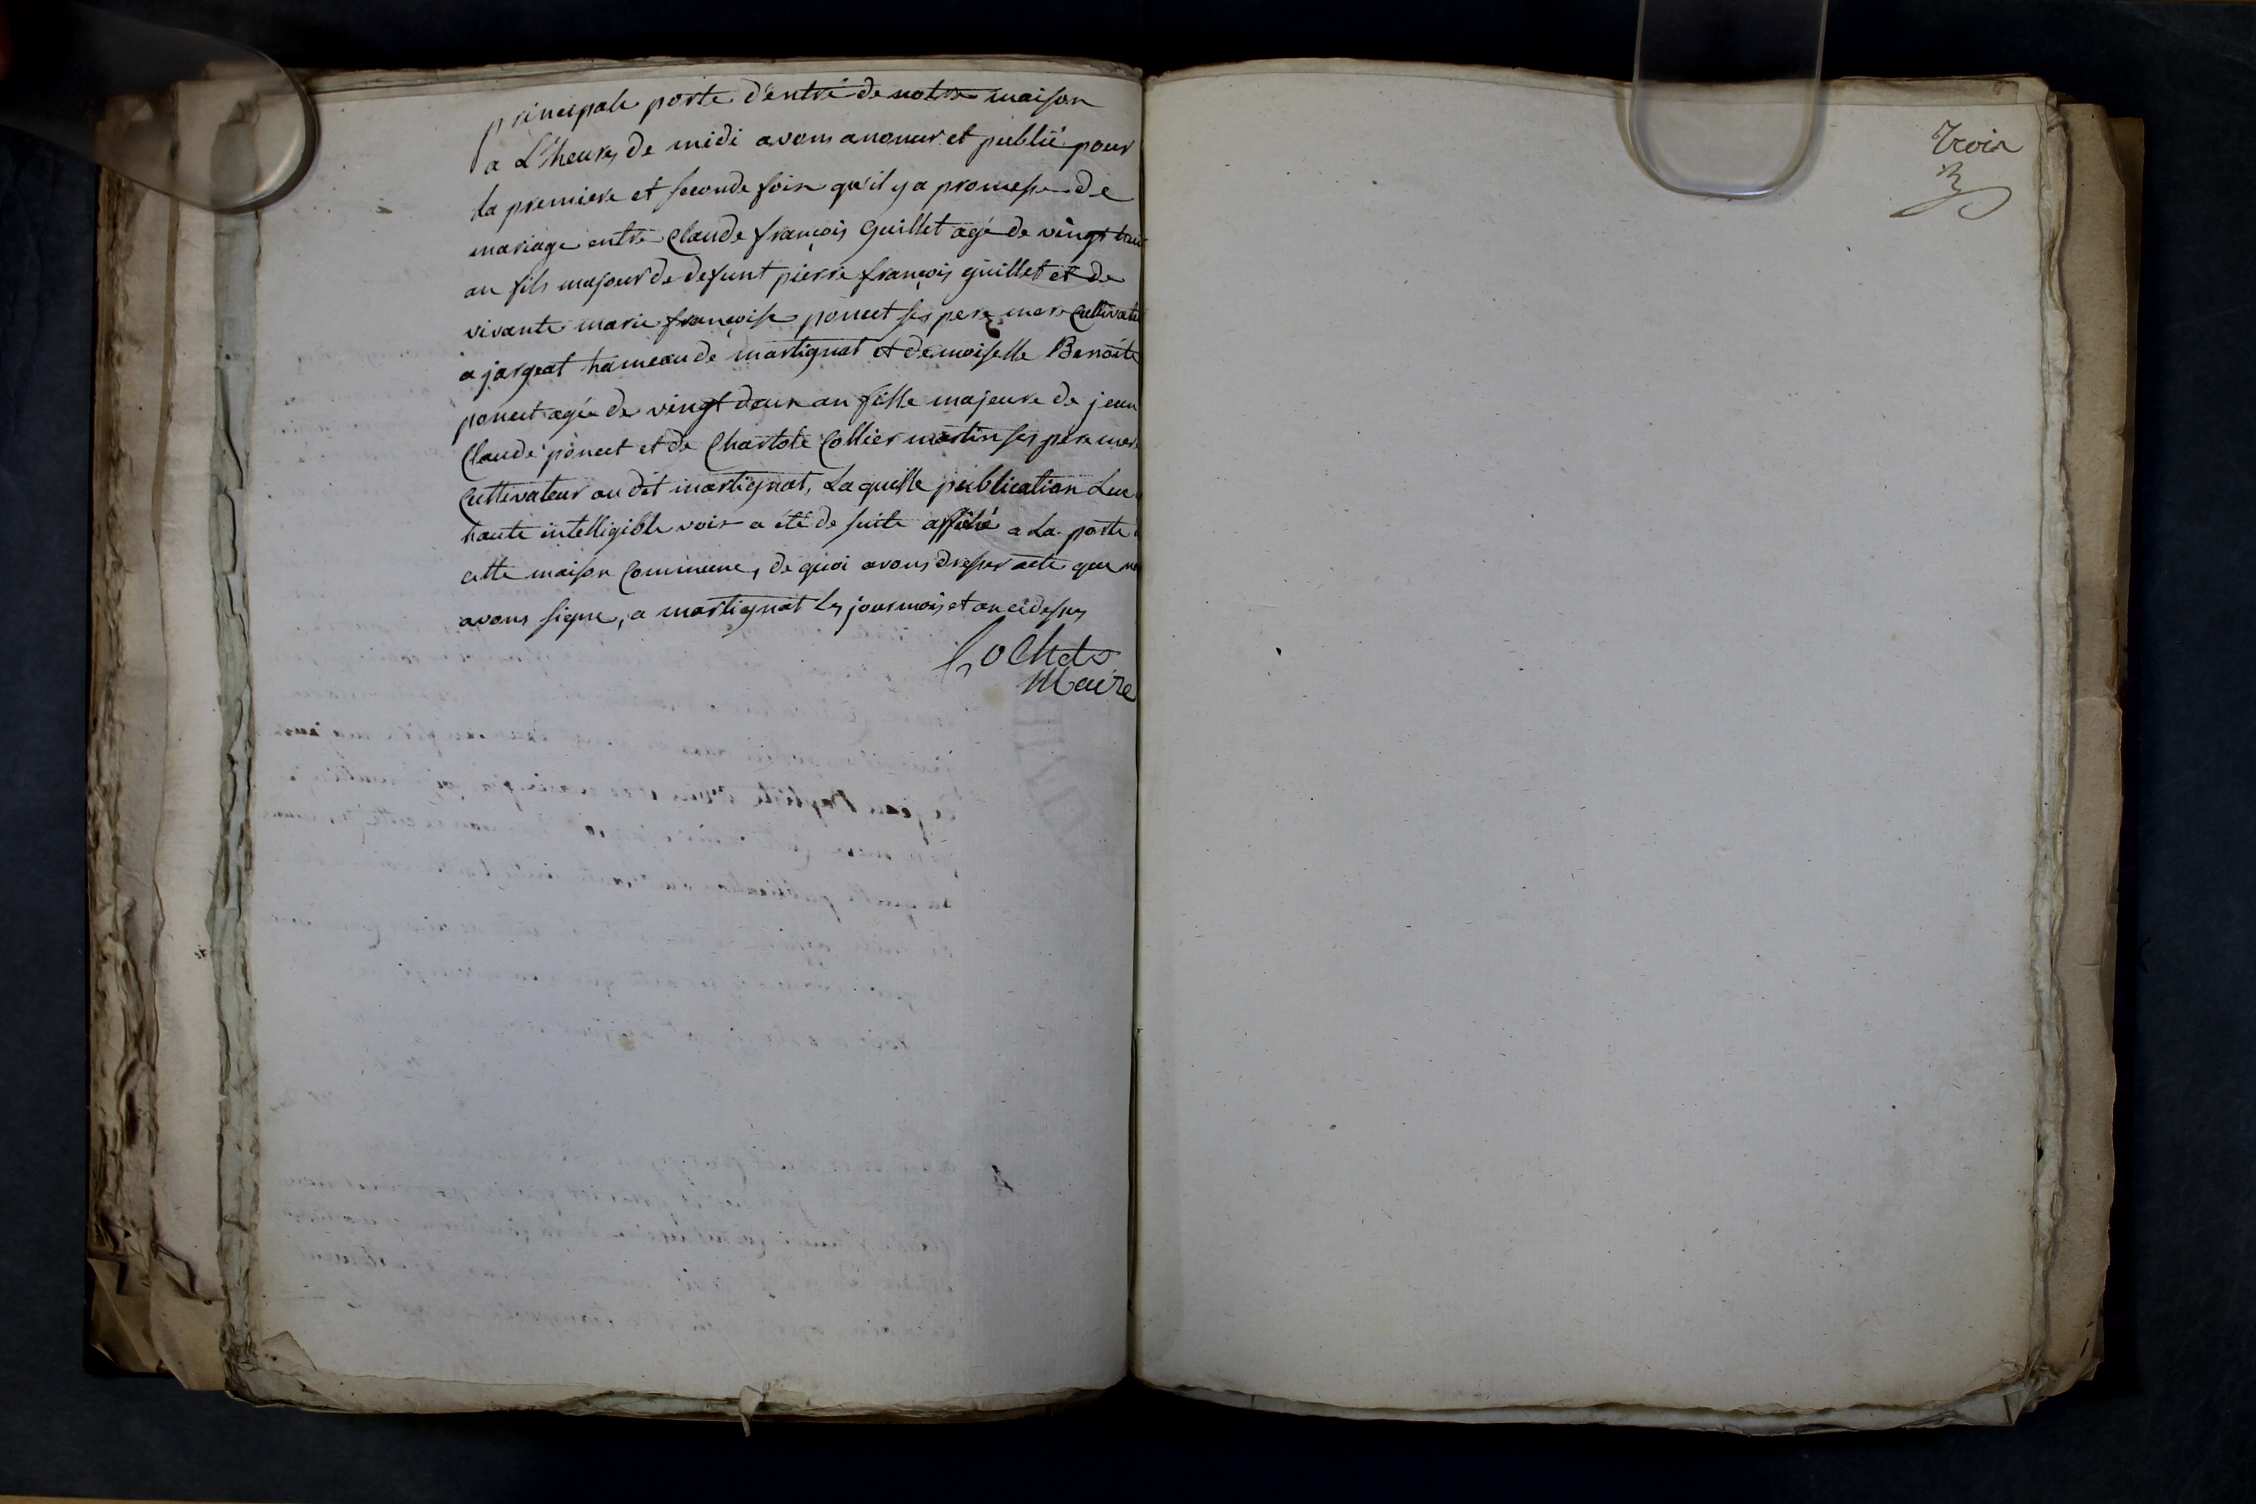 principale porte d'entré de notre maison
a L'heures de midi avons anoncer et publié pour
la premiere et seconde foix qu'il y a promesse de
mariage entre Claude françois Guillet agé de vingt huit
an fils majeur de defunt pierre françois guillet et de
vivante marie françoise poncet ses pere mere Cultivateur
a jargeat hameau de martignat et demoiselle Benoite
poncet agée de vingt deux an fille majeure de jean
Claude poncet et de Charlote Collier martin ses pere mere
Cultivateur au dit martignat, La quelle publication Lue
haute intelligible voix a été de suite affiché a La porte
cette maison Commune, de quoi avons dresser acte que
avons signe, a martignat les jour mois et an ci dessus
Maire
Troix
3